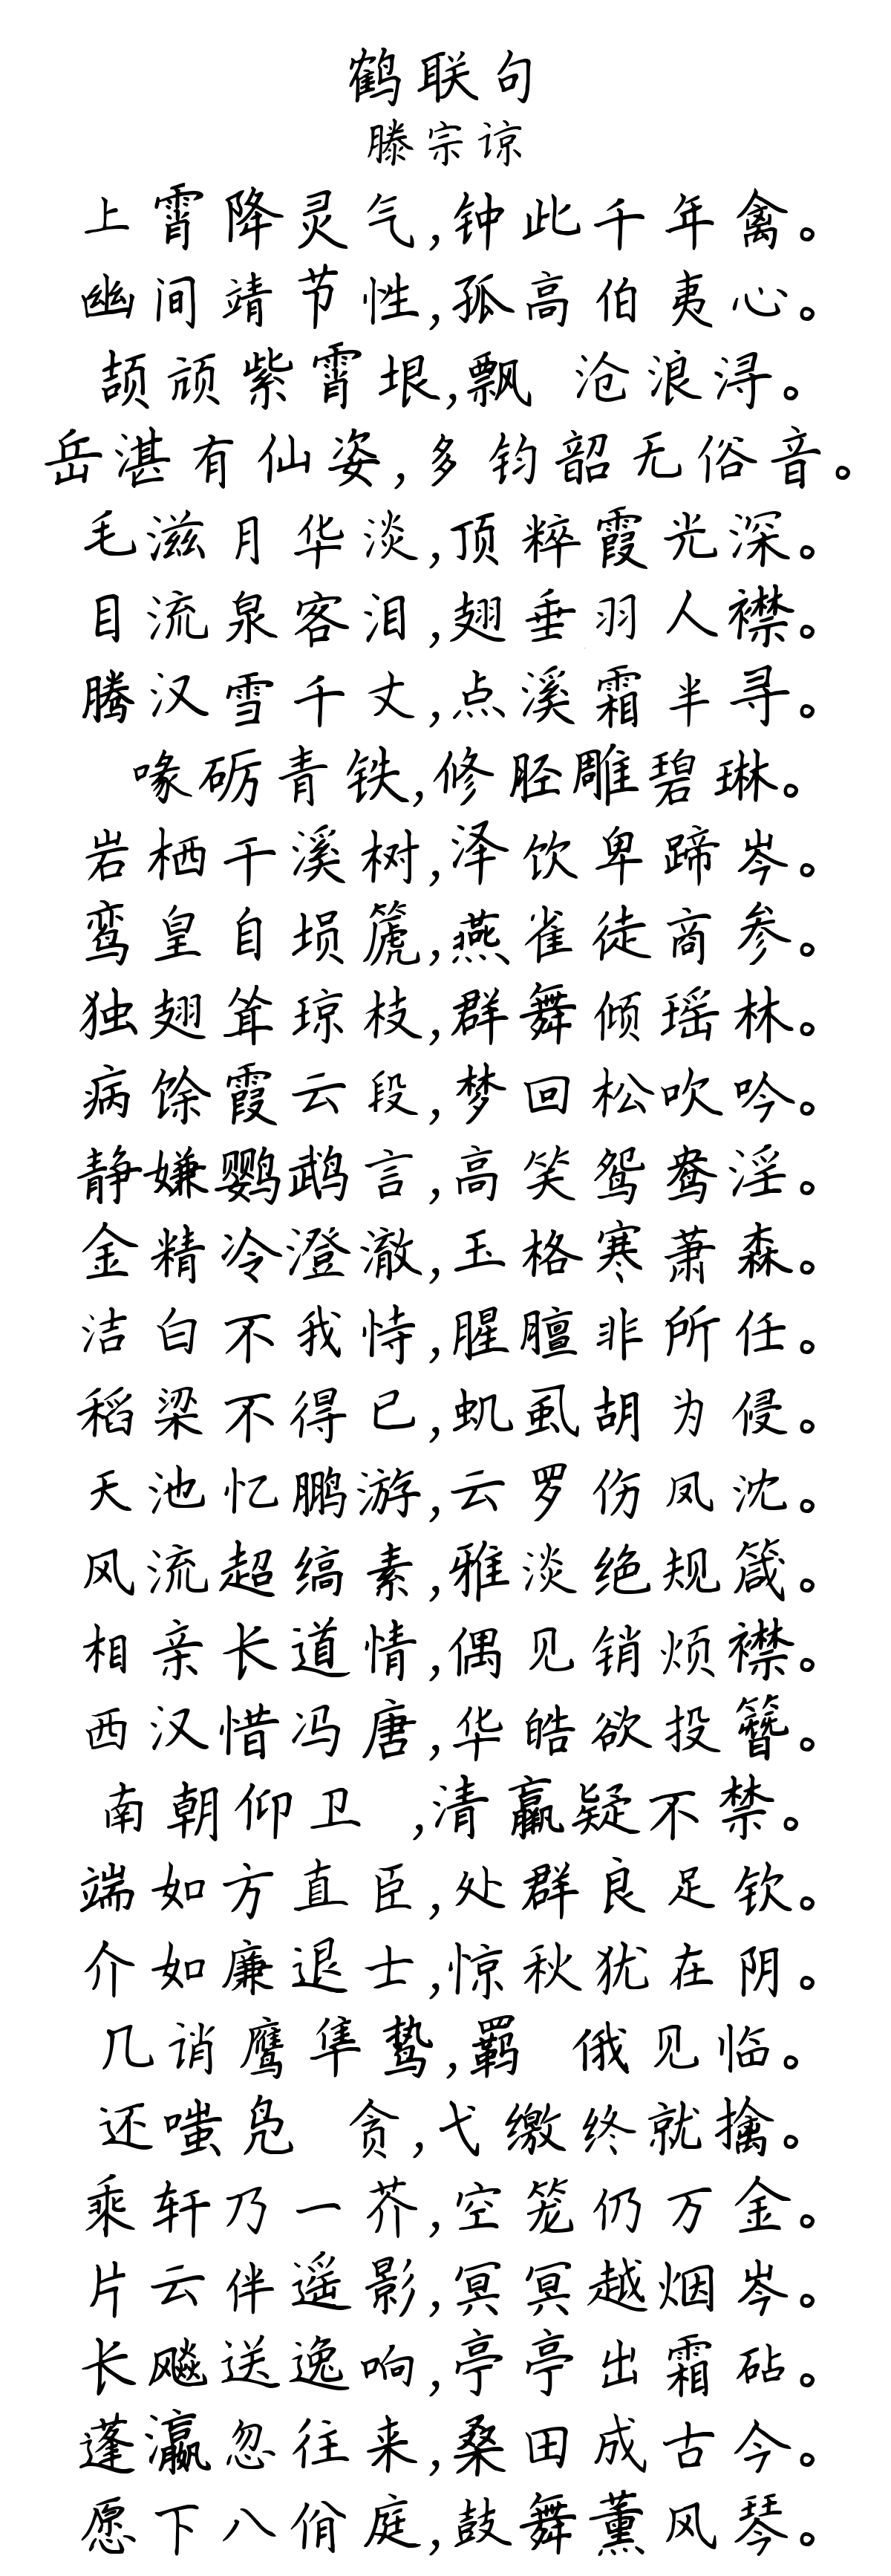 鹤联句
滕宗谅
上霄降灵气,钟此千年禽。
幽间靖节性,孤高伯夷心。
颉颃紫霄垠,飘 沧浪浔。
岳湛有仙姿,多钧韶无俗音。
毛滋月华淡,顶粹霞光深。
目流泉客泪,翅垂羽人襟。
腾汉雪千丈,点溪霜半寻。
喙砺青铁,修胫雕碧琳。
岩栖干溪树,泽饮卑蹄岑。
鸾皇自埙篪,燕雀徒商参。
独翅耸琼枝,群舞倾瑶林。
病馀霞云段,梦回松吹吟。
静嫌鹦鹉言,高笑鸳鸯淫。
金精冷澄澈,玉格寒萧森。
洁白不我恃,腥膻非所任。
稻梁不得已,虮虱胡为侵。
天池忆鹏游,云罗伤凤沈。
风流超缟素,雅淡绝规箴。
相亲长道情,偶见销烦襟。
西汉惜冯唐,华皓欲投簪。
南朝仰卫 ,清羸疑不禁。
端如方直臣,处群良足钦。
介如廉退士,惊秋犹在阴。
几诮鹰隼鸷,羁 俄见临。
还嗤凫 贪,弋缴终就擒。
乘轩乃一芥,空笼仍万金。
片云伴遥影,冥冥越烟岑。
长飚送逸响,亭亭出霜砧。
蓬瀛忽往来,桑田成古今。
愿下八佾庭,鼓舞薰风琴。